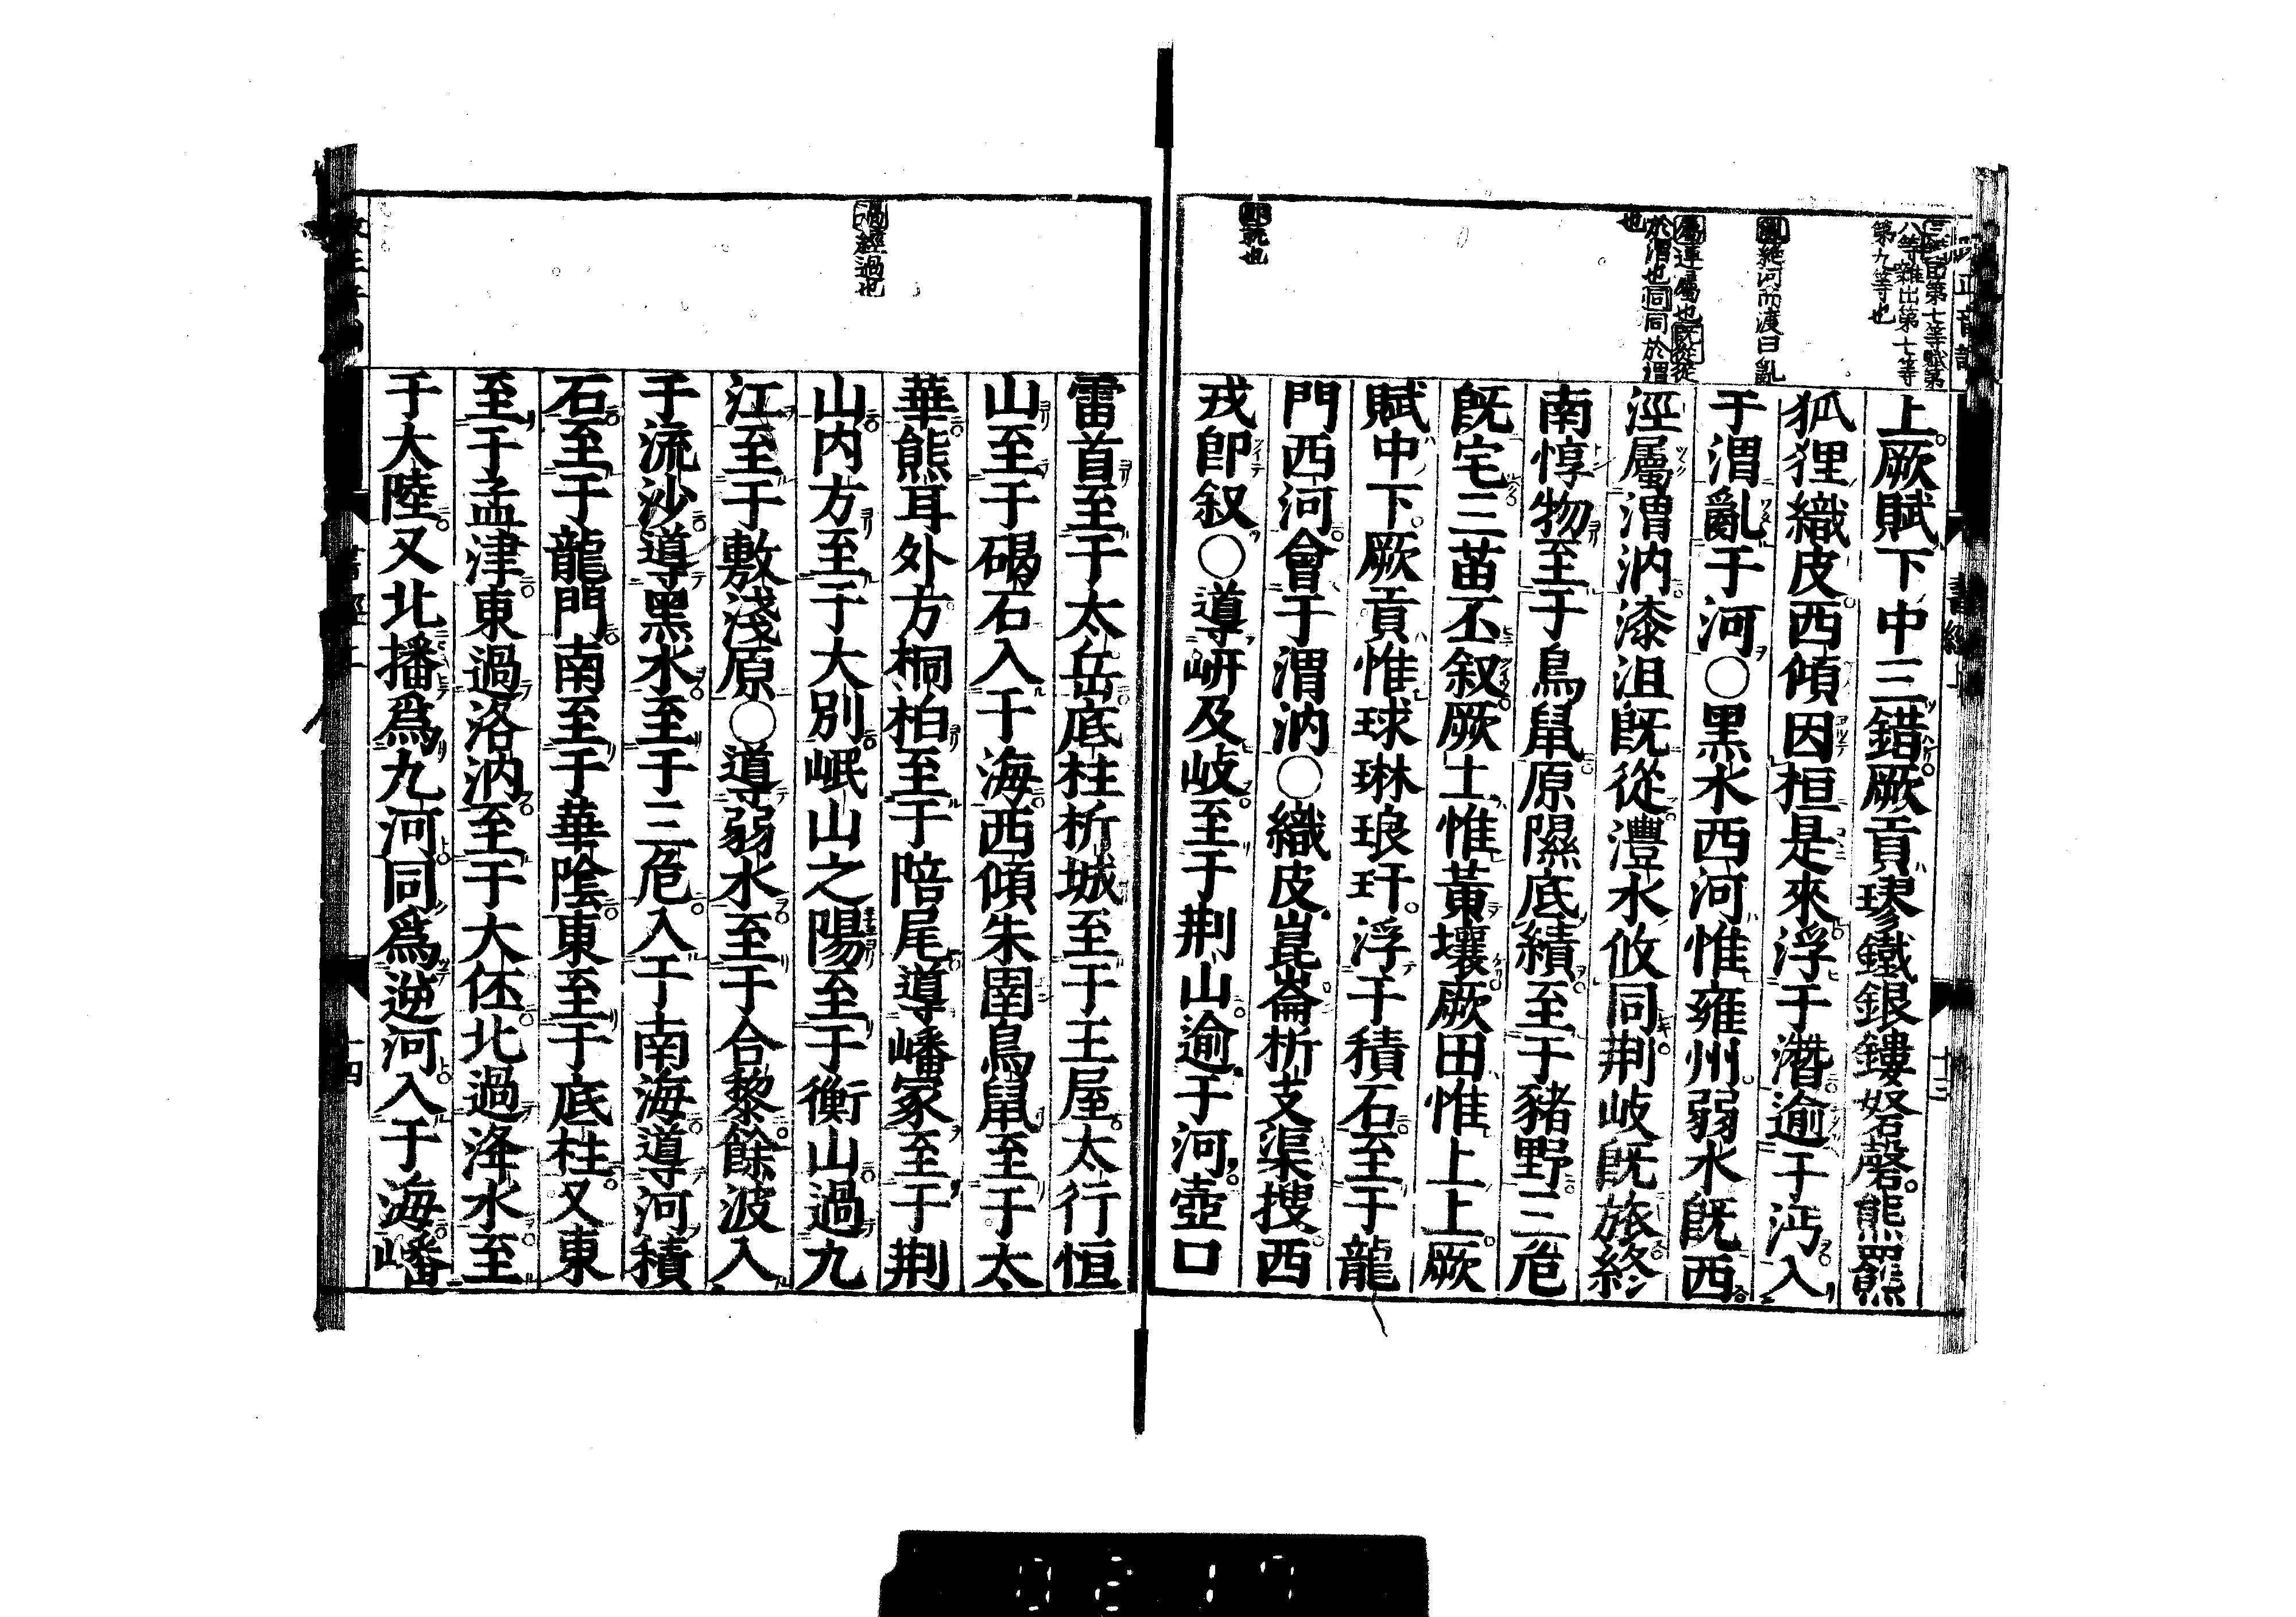 三錯田第七等賦第
八等雜出第七等
第九等也
亂絶河而渡曰亂
屬連屬也既從從
於渭也同同於渭
也
即就也
上厥賦下中三錯厥貢璆鐵銀鏤砮磬熊羆
狐狸織皮西傾因桓是來浮于潛逾于沔入
于渭亂于河○黑水西河惟雍州弱水既西
涇屬渭汭漆沮既從灃水攸同荆岐既旅終
南惇物至于鳥鼠原隰底績至于豬野三危
既宅三苗丕叙厥土惟黃壤厥田惟上上厥
賦中下厥貢惟球琳琅玕浮于積石至于龍
門西河會于渭汭○織皮崑崙析支渠搜西
戎即叙○導岍及岐至于荆山逾于河壺口
書經
十三
過經過也
雷首至于太岳底柱析城至于王屋太行恒
山至于碣石入于海西傾朱圉鳥鼠至于太
華熊耳外方桐柏至于陪尾導嶓冢至于荆
山內方至于大別岷山之陽至于衡山過九
江至于敷淺原○導弱水至于合黎餘波入
于流沙導黑水至于三危入于南海導河積
石至于龍門南至于華陰東至于底柱又東
至于孟津東過洛汭至于大伾北過洚水至
于大陸又北播爲九河同爲逆河入于海嶓